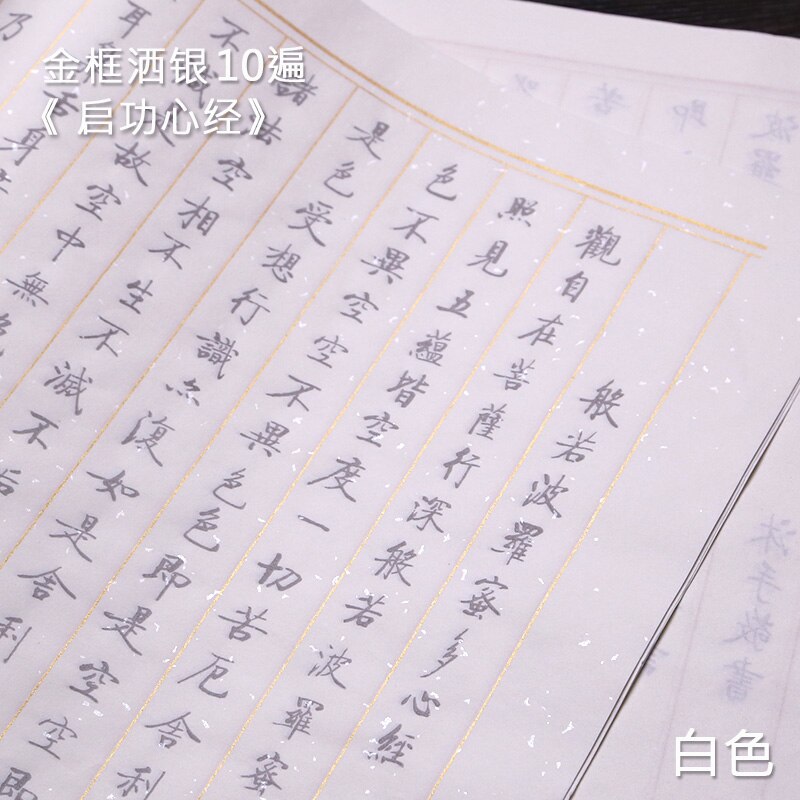 金框洒银10遍
《启功心经》
般若波羅蜜多心經
觀自在菩薩行深般若波羅蜜
照見五蘊皆空度一切苦厄舍利
色不異空空不異色色即是空空即
是色受想行識亦復如是舍利
諸法空相不生不滅不垢
不減是故空中無色
耳舌身
乃
波羅
即
苦
沐手敬書
白色